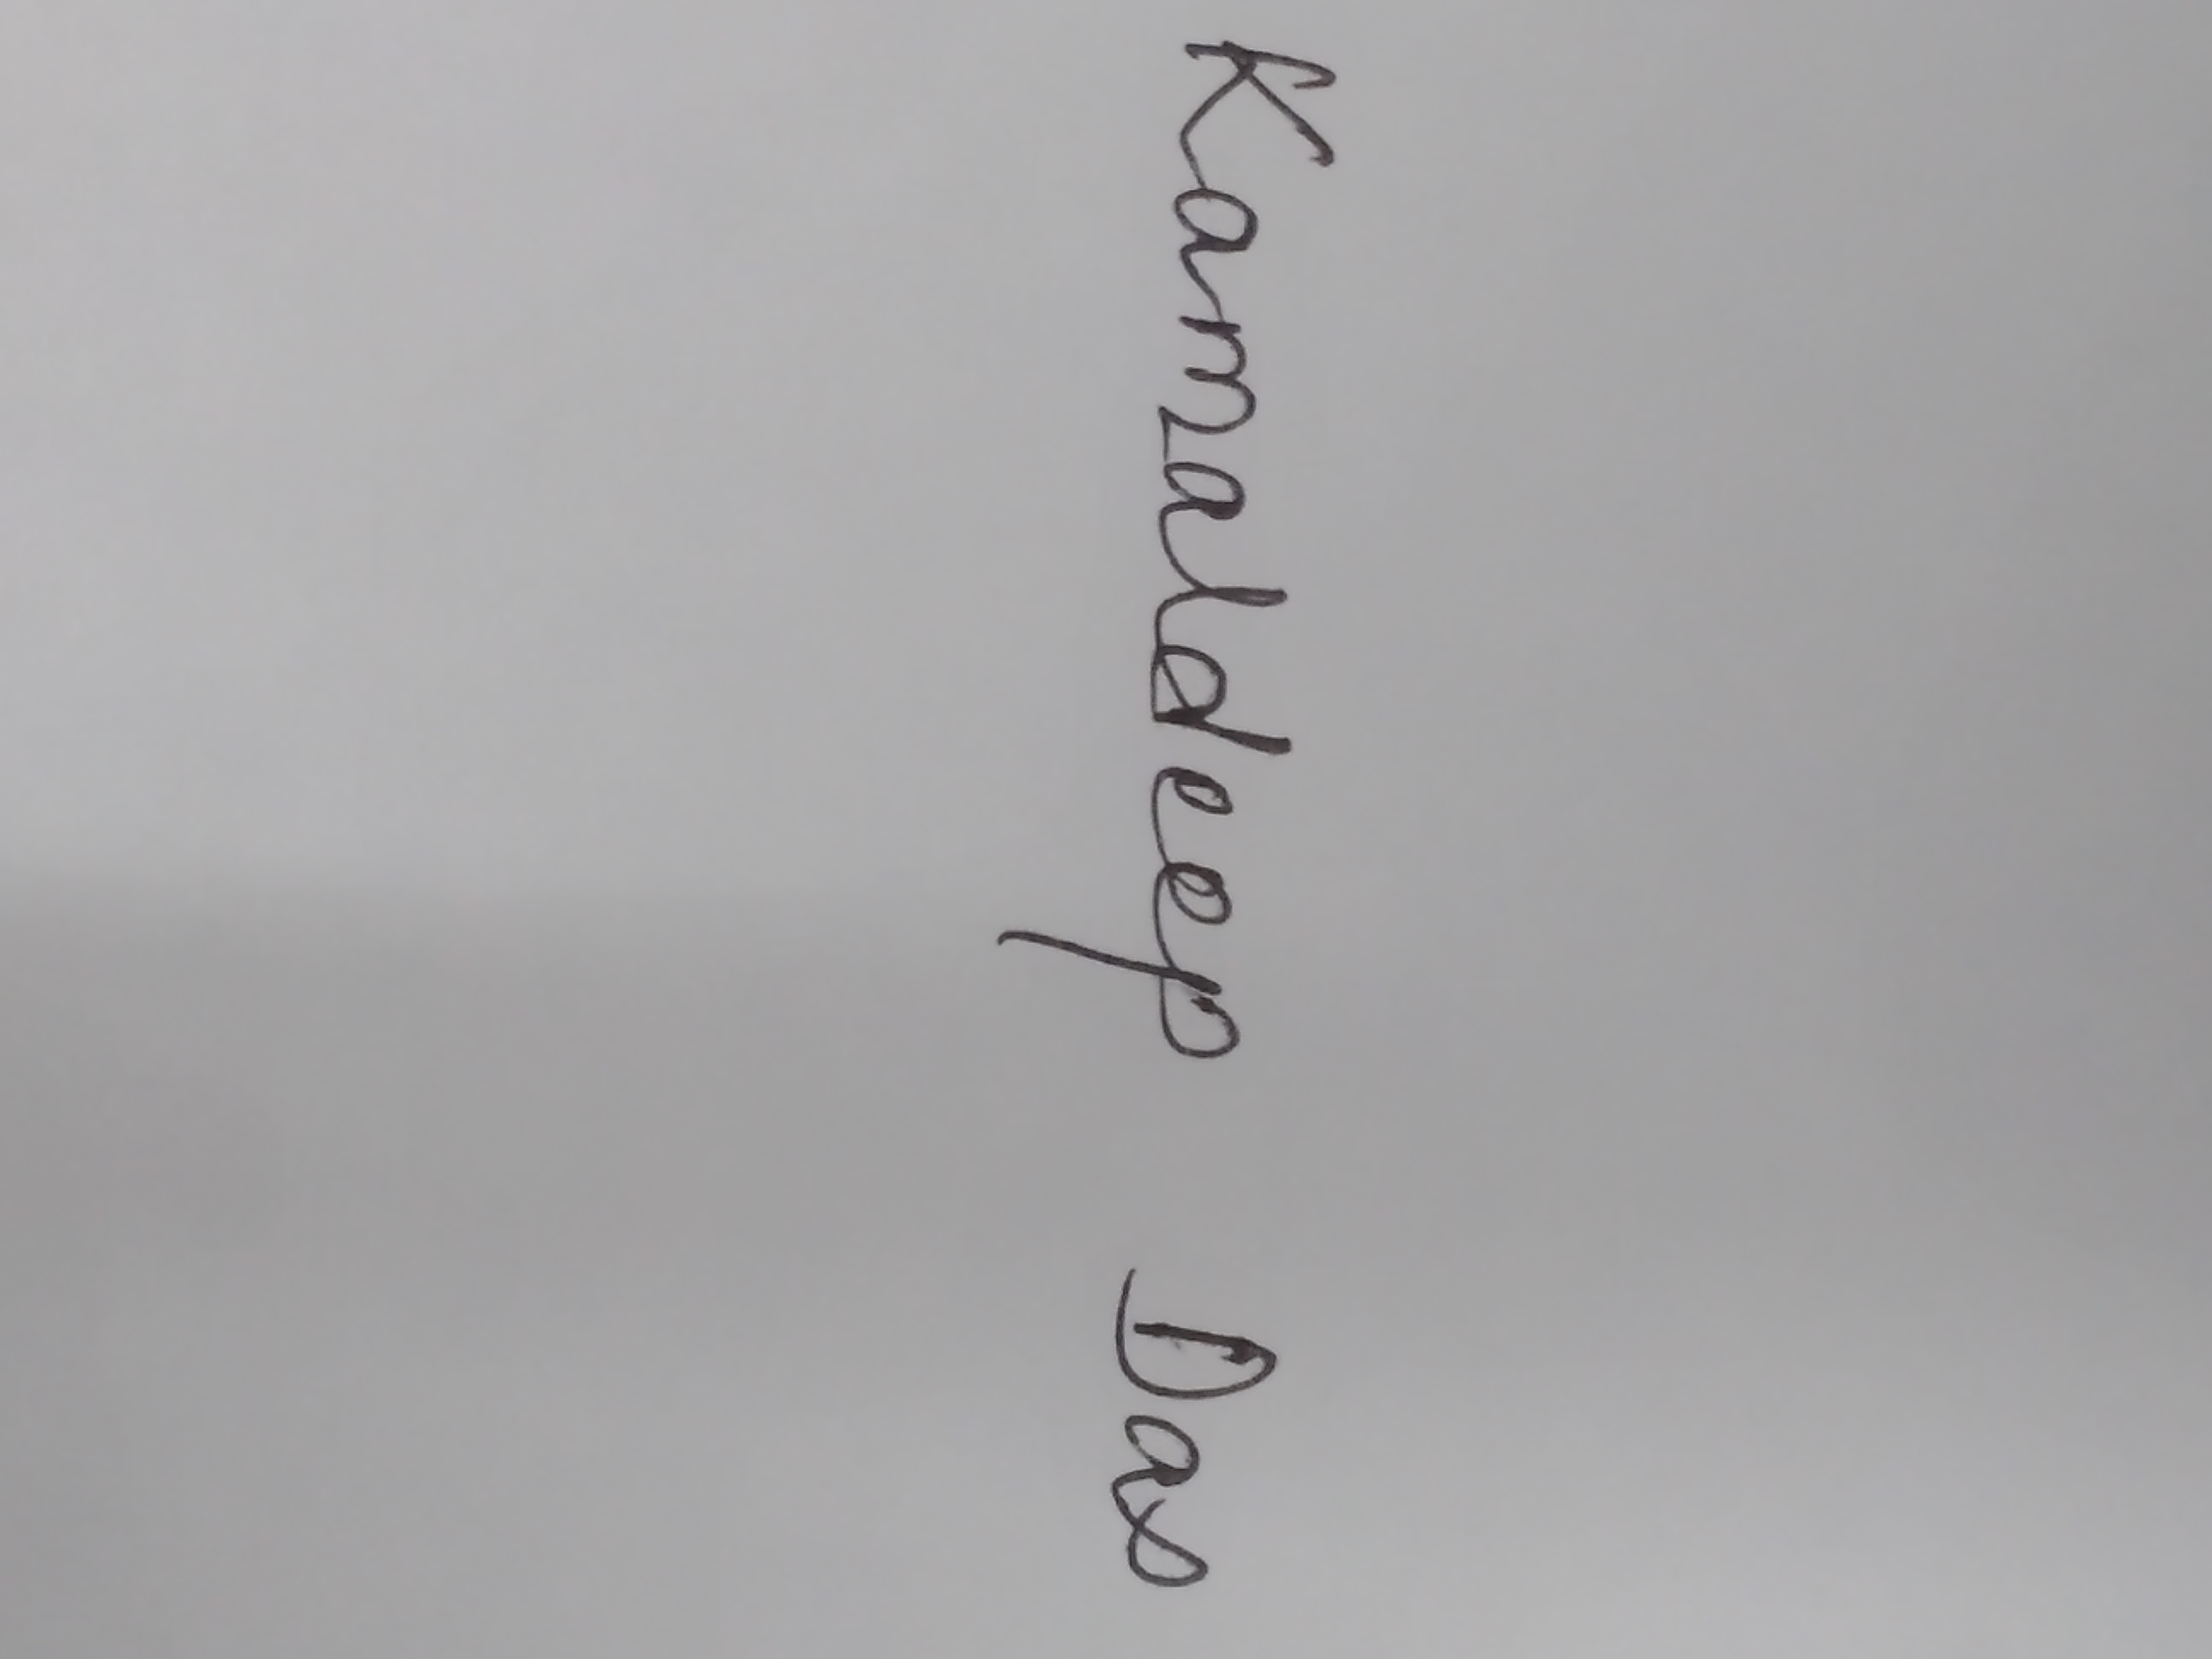 Kamaldeep Das